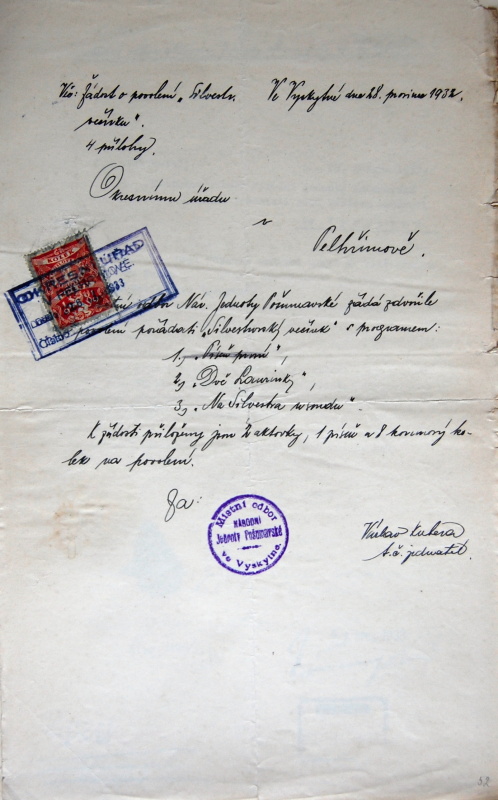 Věc: Žádost o povolení „Silvestr.
večírku".
4 přílohy.
Ve Vyskytné dne 28. prosince 1932.
Okresnímu úřadu
v
Pelhřimově.
odbor Nár. Jednoty Pošumavské žádá zdvořile
povolení pořádati „Silvestrovský večírek" s programem:
1.,
2., „Dvě Laurinky",
3., „Na Silvestra
K žádosti přiloženy jsou 2 aktovky, 1 píseň a 8 korunový ko-
lek na povolení.
Za:
Místní odbor
NÁRODNÍ
Jednoty Pošumavské
ve Vyskytné.
Václav Kubera
t.č. jednatel.
52